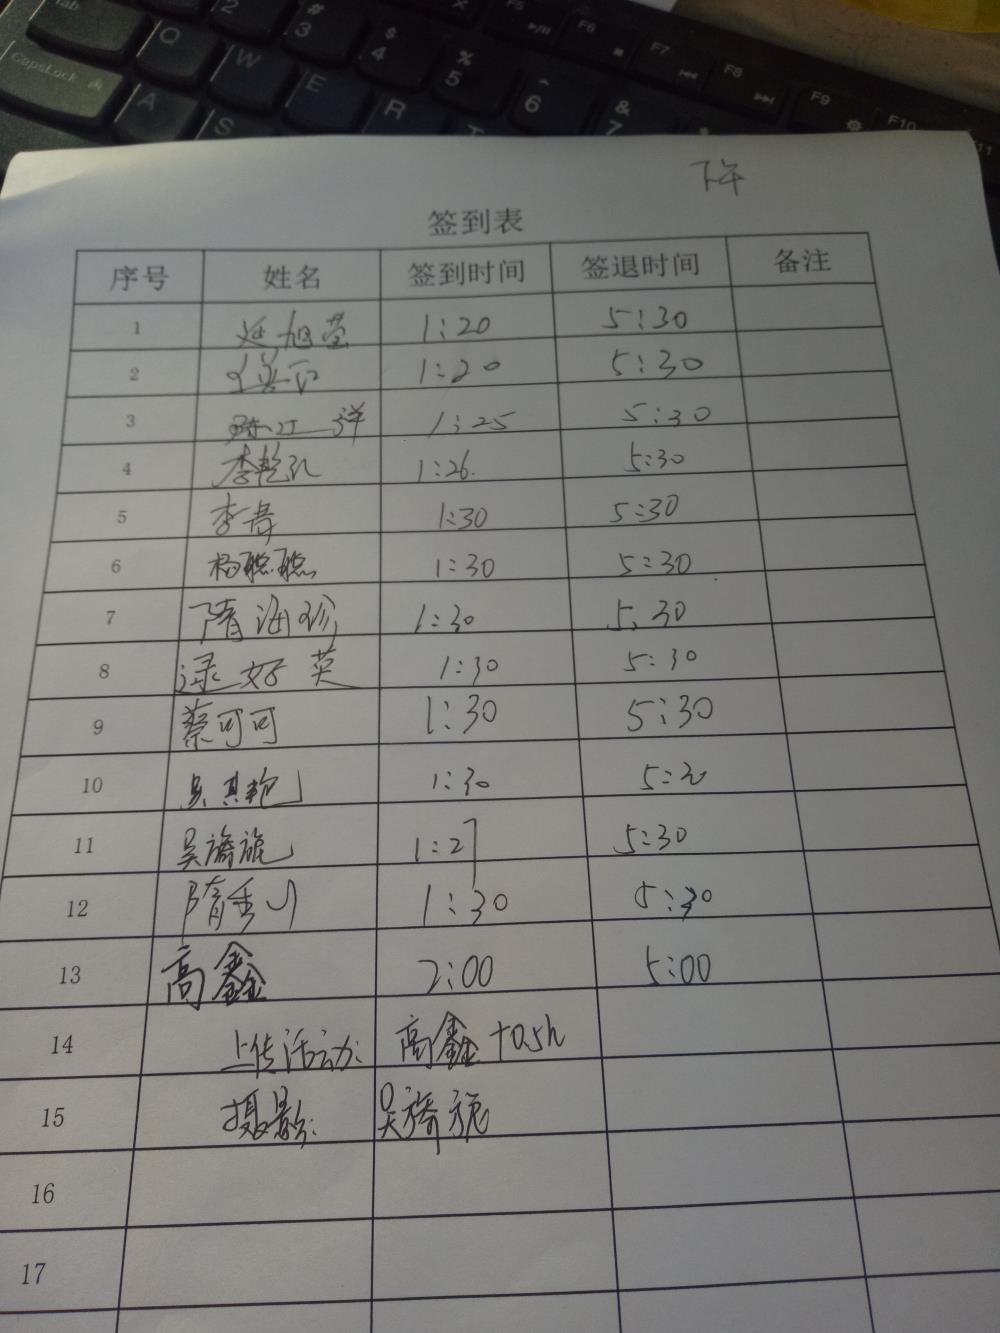 Tab
Q W E R
CapsLock A S
2 # 3 $ 4 % 5 ^ 6 & 7
F5 F6 F7 F8 F9 F10
下午
签到表
序号 姓名 签到时间 签退时间 备注
1 延旭莹 1:20 5:30
2 1:20 5:30
3 1:25 5:30
4 李乾弘 1:26. 5:30
5 李青 1:30 5:30
6 杨聪聪 1:30 5:30
7 隋海珍 1:30 5:30
8 逯好英 1:30 5:30
9 蔡可可 1:30 5:30
10 吴其艳 1:30 5:30
11 吴旖旎 1:27 5:30
12 隋秀川 1:30 5:30
13 高鑫 2:00 5:00
14 上传活动: 高鑫 +0.5h
15 摄影: 吴旖旎
16
17